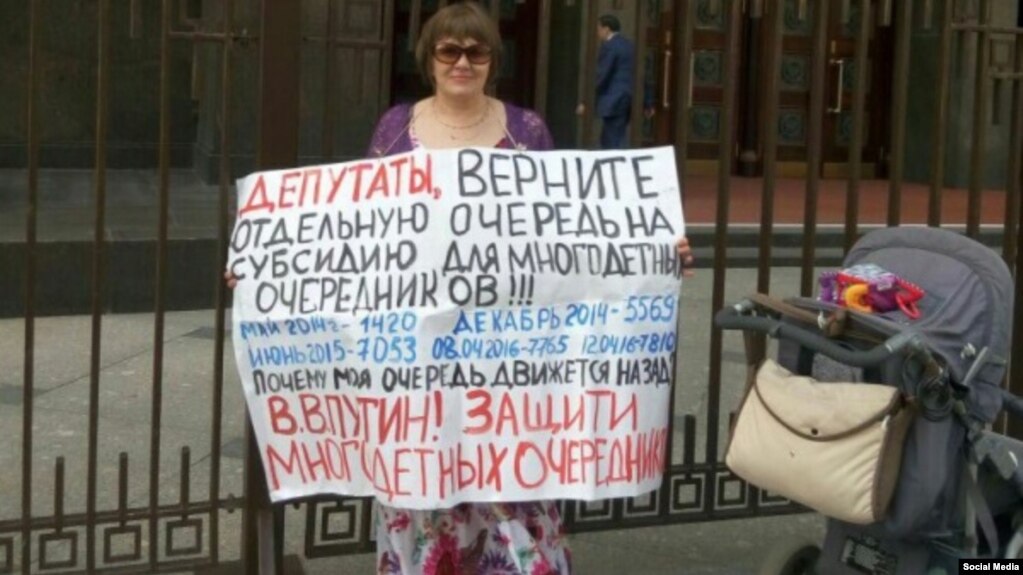 ДЕПУТАТЫ, ВЕРНИТЕ
ОТДЕЛЬНУЮ ОЧЕРЕДЬ НА
СУБСИДИЮ ДЛЯ МНОГОДЕТНЫ
ОЧЕРЕДНИКОВ!!!
МАЙ 2014г- 1420 ДЕКАБРЬ 2014-5569
ИЮНЬ 2015-7053 08.04.2016-7765 12.04.16-7810
ПОЧЕМУ МОЯ ОЧЕРЕДЬ ДВИЖЕТСЯ НАЗАД?
В.В.ПУТИН! ЗАЩИТИ
МНОГОДЕТНЫХ ОЧЕРЕДНИКО
Social Media